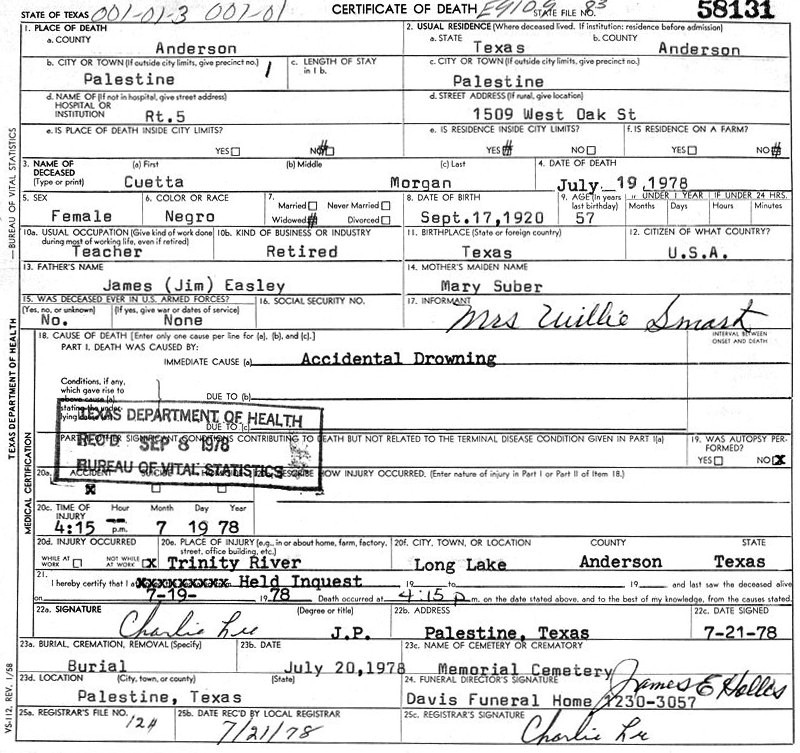 STATE OF TEXAS 001-01-3 001-01 CERTIFICATE OF DEATH E910.9 STATE FILE NO. 83 58131
1. PLACE OF DEATH 2. USUAL RESIDENCE (Where deceased lived. If institution: residence before admission)
a. COUNTY Anderson a. STATE Texas b. COUNTY Anderson
b. CITY OR TOWN (If outside city limits, give precinct no.) Palestine 1 c. LENGTH OF STAY in 1 b. c. CITY OR TOWN (If outside city limits, give precinct no.) Palestine
d. NAME OF (If not in hospital, give street address) HOSPITAL OR INSTITUTION Rt.5 d. STREET ADDRESS (If rural, give location) 1509 West Oak St
e. IS PLACE OF DEATH INSIDE CITY LIMITS? YES NO e. IS RESIDENCE INSIDE CITY LIMITS? YES NO f. IS RESIDENCE ON A FARM? YES NO
3. NAME OF DECEASED (Type or print) (a) First Cuetta (b) Middle (c) Last Morgan 4. DATE OF DEATH July 19, 1978
5. SEX Female 6. COLOR OR RACE Negro 7. Married Never Married Widowed Divorced 8. DATE OF BIRTH Sept.17,1920 9. AGE (In years last birthday) 57 IF UNDER 1 YEAR Months Days IF UNDER 24 HRS. Hours Minutes
10a. USUAL OCCUPATION (Give kind of work done during most of working life, even if retired) Teacher 10b. KIND OF BUSINESS OR INDUSTRY Retired 11. BIRTHPLACE (State or foreign country) Texas 12. CITIZEN OF WHAT COUNTRY? U.S.A.
13. FATHER'S NAME James (Jim) Easley 14. MOTHER'S MAIDEN NAME Mary Suber
15. WAS DECEASED EVER IN U.S. ARMED FORCES? (Yes, no, or unknown) No. (If yes, give war or dates of service) None 16. SOCIAL SECURITY NO. 17. INFORMANT Mrs Willie Smart
18. CAUSE OF DEATH [Enter only one cause per line for (a), (b), and (c).] INTERVAL BETWEEN ONSET AND DEATH
PART I. DEATH WAS CAUSED BY:
IMMEDIATE CAUSE (a) Accidental Drowning
Conditions, if any, which gave rise to above cause (a), stating the under-lying cause last.
DUE TO (b)
DUE TO (c)
TEXAS DEPARTMENT OF HEALTH
REC'D SEP 8 1978
BUREAU OF VITAL STATISTICS
PART II. OTHER SIGNIFICANT CONDITIONS CONTRIBUTING TO DEATH BUT NOT RELATED TO THE TERMINAL DISEASE CONDITION GIVEN IN PART I(a) 19. WAS AUTOPSY PERFORMED? YES NO X
20a. ACCIDENT X SUICIDE HOMICIDE 20b. DESCRIBE HOW INJURY OCCURRED. (Enter nature of injury in Part I or Part II of Item 18.)
20c. TIME OF INJURY Hour Month Day Year
4:15 p.m. 7 19 78
20d. INJURY OCCURRED WHILE AT WORK NOT WHILE AT WORK X 20e. PLACE OF INJURY (e.g., in or about home, farm, factory, street, office building, etc.) Trinity River 20f. CITY, TOWN, OR LOCATION Long Lake COUNTY Anderson STATE Texas
21. I hereby certify that I Held Inquest 19 to 19 and last saw the deceased alive
on 7-19- 1978 Death occurred at 4:15 p.m. on the date stated above, and to the best of my knowledge, from the causes stated.
22a. SIGNATURE Charlie Lee (Degree or title) J.P. 22b. ADDRESS Palestine, Texas 22c. DATE SIGNED 7-21-78
23a. BURIAL, CREMATION, REMOVAL (Specify) Burial 23b. DATE July 20,1978 23c. NAME OF CEMETERY OR CREMATORY Memorial Cemetery
23d. LOCATION (City, town, or county) (State) Palestine, Texas 24. FUNERAL DIRECTOR'S SIGNATURE Davis Funeral Home 1230-3057 James E
25a. REGISTRAR'S FILE NO. 124 25b. DATE REC'D BY LOCAL REGISTRAR 7/21/78 25c. REGISTRAR'S SIGNATURE Charlie Lee
VS-112, REV. 1/58
TEXAS DEPARTMENT OF HEALTH — BUREAU OF VITAL STATISTICS
MEDICAL CERTIFICATION